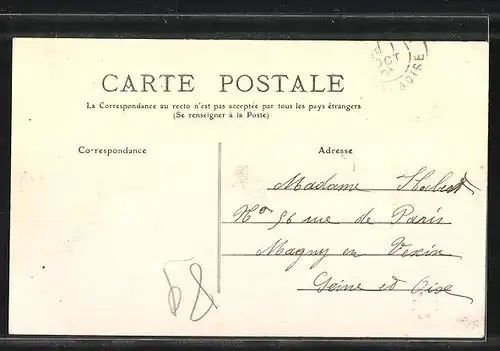 OCT
OISE
CARTE POSTALE
La Correspondance au recto n'est pas acceptée par tous les pays étrangers
(Se renseigner à la Poste)
Correspondance
Adresse
Madame
No 56 rue de Paris
Magny en Vexin
Seine et Oise
58